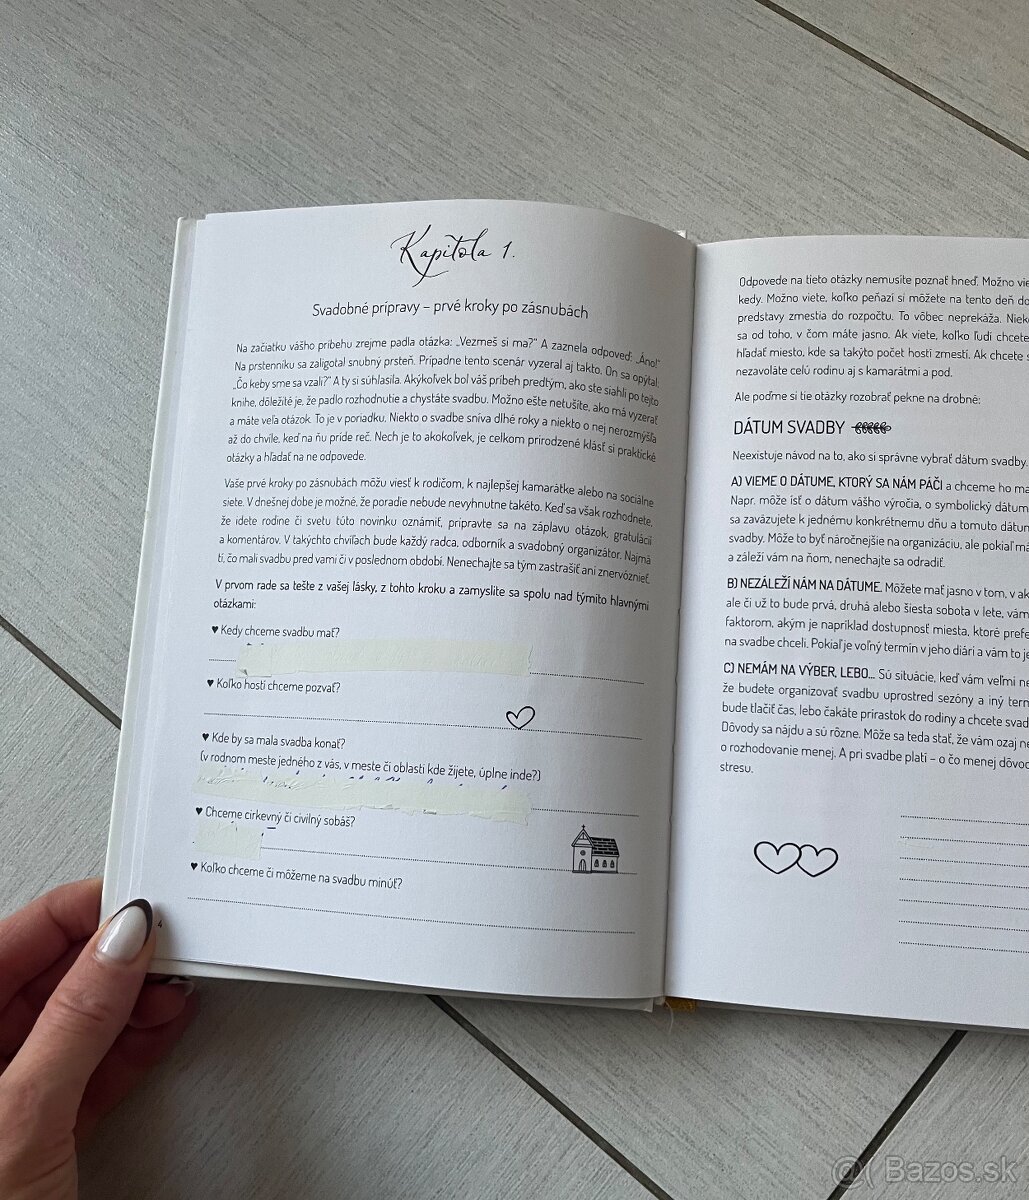 Kapitola 1.
Svadobné prípravy – prvé kroky po zásnubách
Na začiatku vášho príbehu zrejme padla otázka: „Vezmeš si ma?“ A zaznela odpoveď: „Áno!“
Na prstenníku sa zaligotal snubný prsteň. Prípadne tento scenár vyzeral aj takto. On sa opýtal:
„Čo keby sme sa vzali?“ A ty si súhlasila. Akýkoľvek bol váš príbeh predtým, ako ste siahli po tejto
knihe, dôležité je, že padlo rozhodnutie a chystáte svadbu. Možno ešte netušíte, ako má vyzerať
a máte veľa otázok. To je v poriadku. Niekto o svadbe sníva dlhé roky a niekto o nej nerozmýšľa
až do chvíle, keď na ňu príde reč. Nech je to akokoľvek, je celkom prirodzené klásť si praktické
otázky a hľadať na ne odpovede.
Vaše prvé kroky po zásnubách môžu viesť k rodičom, k najlepšej kamarátke alebo na sociálne
siete. V dnešnej dobe je možné, že poradie nebude nevyhnutne takéto. Keď sa však rozhodnete,
že idete rodine či svetu túto novinku oznámiť, pripravte sa na záplavu otázok, gratulácií
a komentárov. V takýchto chvíľach bude každý radca, odborník a svadobný organizátor. Najmä
tí, čo mali svadbu pred vami či v poslednom období. Nenechajte sa tým zastrašiť ani znervózniť.
V prvom rade sa tešte z vašej lásky, z tohto kroku a zamyslite sa spolu nad týmito hlavnými
otázkami:
♥ Kedy chceme svadbu mať?
♥ Koľko hostí chceme pozvať?
♥ Kde by sa mala svadba konať?
(v rodnom meste jedného z vás, v meste či oblasti kde žijete, úplne inde?)
♥ Chceme cirkevný či civilný sobáš?
♥ Koľko chceme či môžeme na svadbu minúť?
4
Odpovede na tieto otázky nemusíte poznať hneď. Možno vie
kedy. Možno viete, koľko peňazí si môžete na tento deň do
predstavy zmestia do rozpočtu. To vôbec neprekáža. Nieko
sa od toho, v čom máte jasno. Ak viete, koľko ľudí chcete
hľadať miesto, kde sa takýto počet hostí zmestí. Ak chcete s
nezavoláte celú rodinu aj s kamarátmi a pod.
Ale poďme si tie otázky rozobrať pekne na drobné:
DÁTUM SVADBY
Neexistuje návod na to, ako si správne vybrať dátum svadby.
A) VIEME O DÁTUME, KTORÝ SA NÁM PÁČI a chceme ho ma
Napr. môže ísť o dátum vášho výročia, o symbolický dátum
sa zaväzujete k jednému konkrétnemu dňu a tomuto dátum
svadby. Môže to byť náročnejšie na organizáciu, ale pokiaľ má
a záleží vám na ňom, nenechajte sa odradiť.
B) NEZÁLEŽÍ NÁM NA DÁTUME. Môžete mať jasno v tom, v ak
ale či už to bude prvá, druhá alebo šiesta sobota v lete, vám
faktorom, akým je napríklad dostupnosť miesta, ktoré prefe
na svadbe chceli. Pokiaľ je voľný termín v jeho diári a vám to je
C) NEMÁM NA VÝBER, LEBO... Sú situácie, keď vám veľmi ne
že budete organizovať svadbu uprostred sezóny a iný term
bude tlačiť čas, lebo čakáte prírastok do rodiny a chcete svad
Dôvody sa nájdu a sú rôzne. Môže sa teda stať, že vám ozaj ne
o rozhodovanie menej. A pri svadbe platí – o čo menej dôvod
stresu.
Bazos.sk